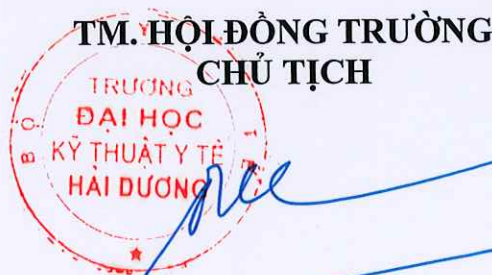 TM. HỘI ĐỒNG TRƯỜNG
CHỦ TỊCH
TRƯỜNG
ĐẠI HỌC
KỸ THUẬT Y TẾ
HẢI DƯƠNG